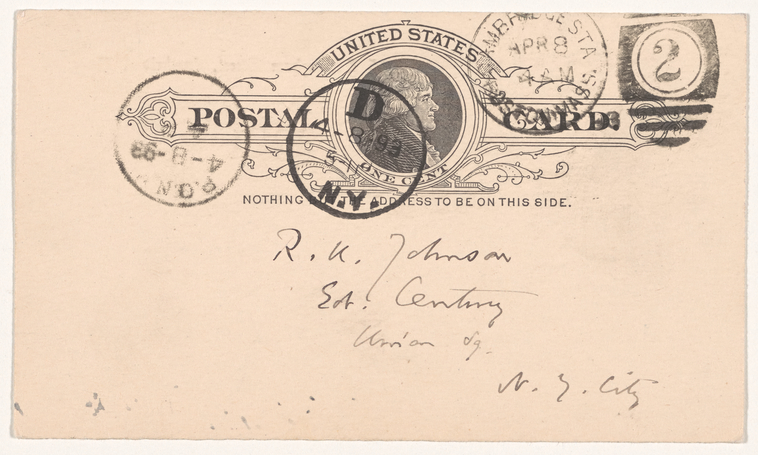 UNITED STATES
POSTAL CARD.
ONE CENT
CAMBRIDGE STA.
APR 8
4 AM
BOSTON, MASS.
93
2
D
4-8 93
5-
N.Y.
P.O. N.Y.
4-8-93
NOTHING BUT THE ADDRESS TO BE ON THIS SIDE.
R. U. Johnson
Edt. Century
Union Sq.
N. Y. City